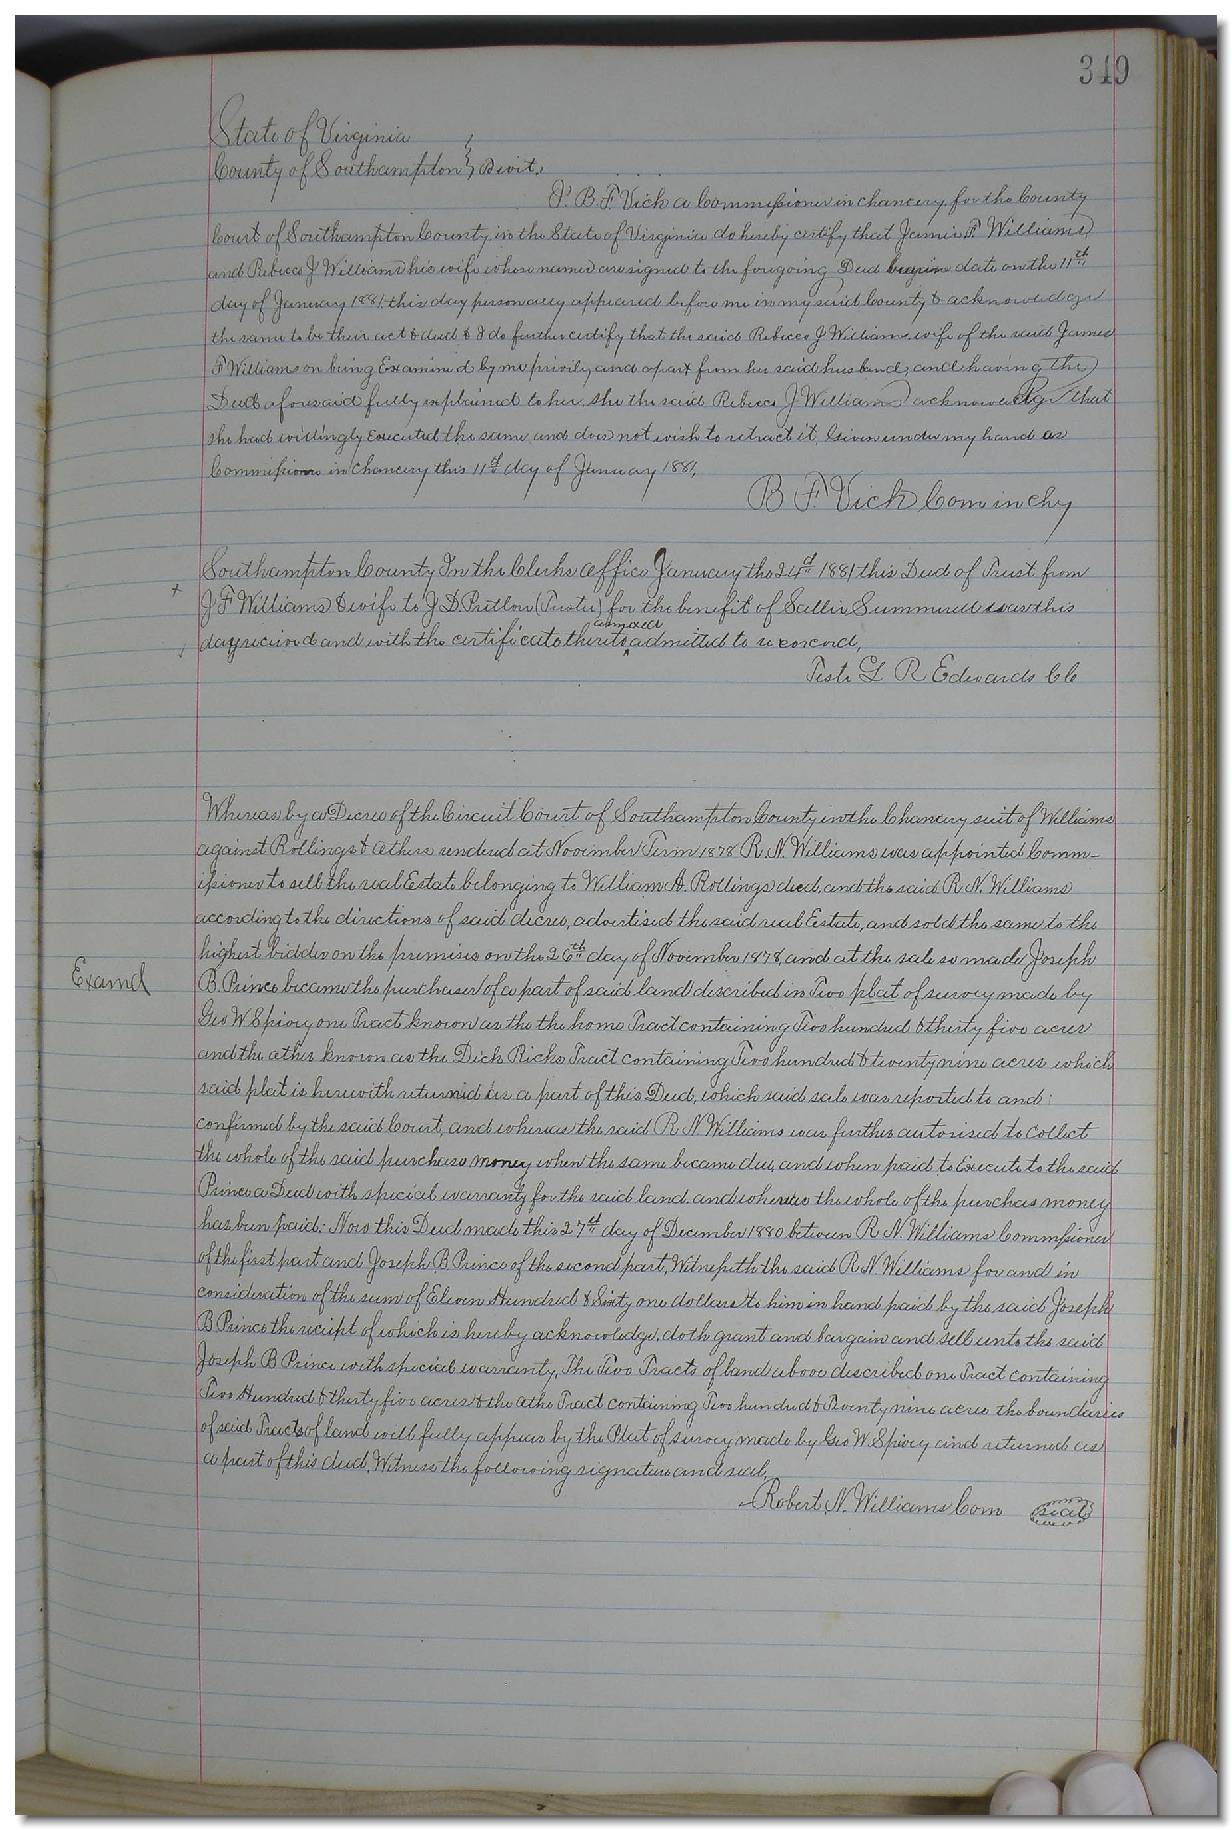 349
State of Virginia
County of Southampton } Sct.
I, B. F. Vick a Commissioner in chancery for the County
Court of Southampton County in the State of Virginia do hereby certify that James F Williams
and Rebecca J Williams his wife whose names are signed to the foregoing Deed bearing date on the 11th
day of January 1881 this day personally appeared before me in my said County & acknowledged
the same to be their act & deed & I do further certify that the said Rebecca J Williams wife of the said James
F Williams on being Examined by me privily and apart from her said husband, and having the
Deed aforesaid fully explained to her she the said Rebecca J Williams acknowledge that
she had willingly Executed the same and does not wish to retract it, Given under my hand as
Commissioner in chancery this 11th day of January 1881,
B F. Vick Com in chy
Southampton County In the Clerks office January the 24th 1881 this Deed of Trust from
J. F Williams & wife to J. D. Pretlow (Trustee) for the benefit of Sallie Summerell was this
day received and with the certificate thereto annexed admitted to record,
Teste L R Edwards CC
Whereas by a Decree of the Circuit Court of Southampton County in the Chancery suit of Williams
against Rollings & others rendered at November Term 1878 R. N. Williams was appointed Comm-
issioner to sell the real Estate belonging to William A. Rollings decd, and the said R N. Williams
according to the directions of said decree, advertised the said real Estate, and sold the same to the
highest bidder on the premises on the 26th day of November 1878, and at the sale so made Joseph
Examd
B. Prince became the purchaser of a part of said land described in Two plat of survey made by
Geo W Spivey one Tract known as the the home Tract containing Two hundred & thirty five acres
and the other known as the Dick Ricks Tract containing Two hundred & twenty nine acres which
said plat is herewith returned as a part of this Deed, which said sale was reported to and
confirmed by the said Court, and whereas the said R N Williams was further autorised to collect
the whole of the said purchase money when the same became due, and when paid to Execute to the said
Prince a Deed with special warranty for the said land and whereas the whole of the purchas money
has been paid: Now this Deed made this 27th day of December 1880 between R N Williams Commissioner
of the first part and Joseph B Prince of the second part, Witnesseth the said R N. Williams for and in
consideration of the sum of Eleven Hundred & Sixty one dollars to him in hand paid by the said Joseph
B Prince the receipt of which is hereby acknowledge, doth grant and bargain and sell unto the said
Joseph B Prince with special warranty, The Two Tracts of land above described one Tract containing
Two Hundred & thirty five acres & the othe Tract containing Two hundred & Twenty nine acres the boundaries
of said Tracts of land will fully appear by the Plat of survey made by Geo W Spivey and returned as
a part of this deed, Witness the following signature and seal,
Robert. N. Williams Com seal